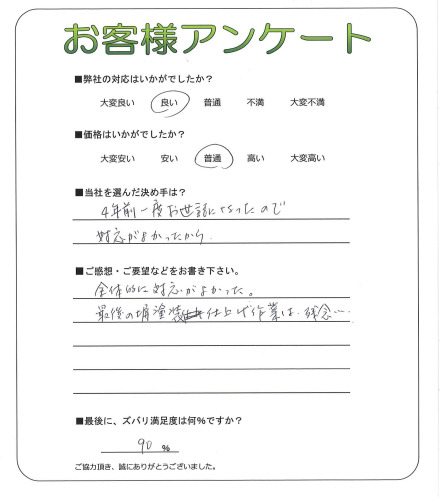 お客様アンケート
■弊社の対応はいかがでしたか?
大変良い 良い 普通 不満 大変不満
■価格はいかがでしたか?
大変安い 安い 普通 高い 大変高い
■当社を選んだ決め手は?
4年前一度お世話になったので
対応がよかったから.
■ご感想・ご要望などをお書き下さい。
全体的に対応がよかった。
最後の塀塗装仕上げ作業は、残念…
■最後に、ズバリ満足度は何%ですか?
90 %
ご協力頂き、誠にありがとうございました。